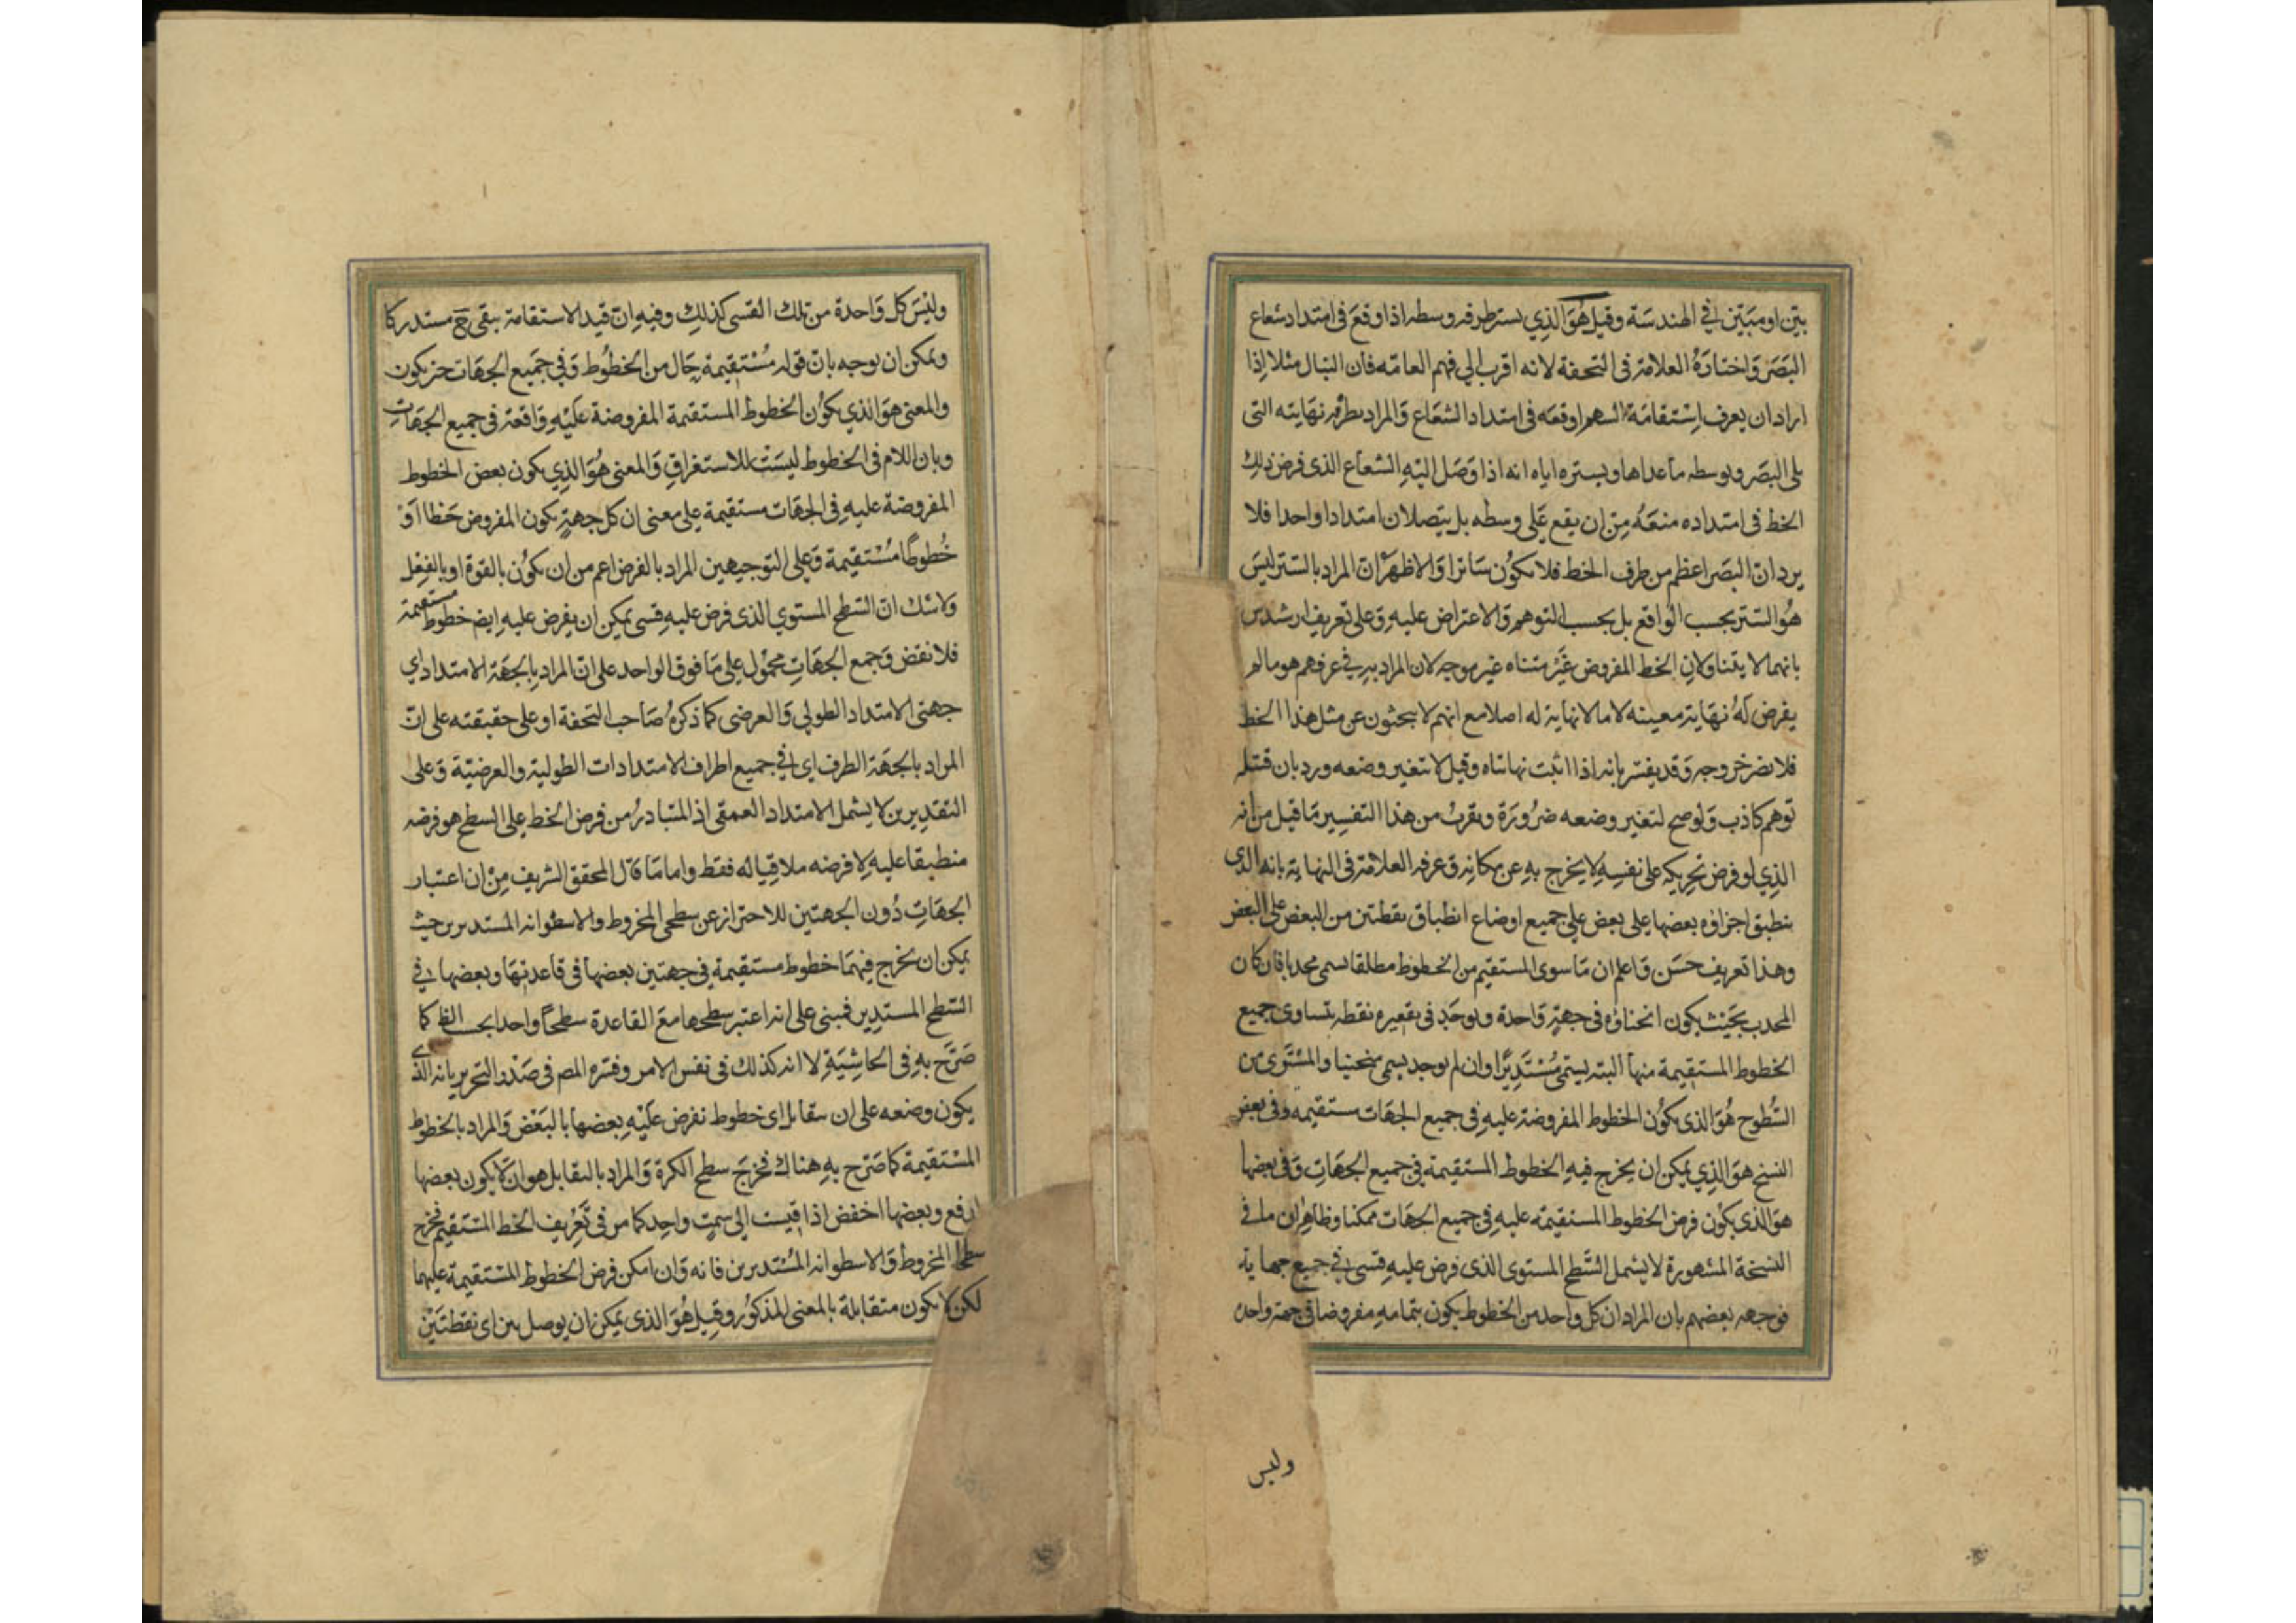 بين او مبين في الهندسة وقيل هو الذي يستر طرفه وسطه اذا وقع في امتداد شعاع
البصر واختاره العلامة في التحفة لانه اقرب الي فهم العامه فان النبال مثلا اذا
اراد ان يعرف استقامة السهم اوقعه في امتداد الشعاع والمراد بطرفه نهايته التي
يلي البصر وبوسطه ما عداها وبستره اياه انه اذا وصل اليه الشعاع الذي فرض ذلك
الخط في امتداده منعه من ان يقع على وسطه بل يتصلان امتدادا واحدا فلا
يرد ان البصر اعظم من طرف الخط فلا يكون ساترا والاظهر ان المراد بالستر ليس
هو الستر بحسب الواقع بل بحسب التوهم والاعتراض عليه وعلى تعريف ارشدس
بانهما لا يتناولان الخط المفروض غير متناه غير موجه لان المراد به في عرفهم هو ما لم
يفرض له نهاية معينه لا ما لا نهاية له اصلا مع انهم لا يبحثون عن مثل هذا الخط
فلا نضر خروجه وقد يفسر بانه اذا اثبت نهاتاه وقيل لا تتغير وضعه ورد بان فتله
توهم كاذب ولو صح لتغير وضعه ضرورة ويقرب من هذا التفسير ما قيل من انه
الذي لو فرض تحريكه على نفسه لا يخرج به عن مكانه وعرفه العلامة في النهاية بانه الذي
ينطبق اجزاؤه بعضها على بعض علي جميع اوضاع انطباق نقطتين من البعض على البعض
وهذا تعريف حسن واعلم ان ما سوى المستقيم من الخطوط مطلقا يسمى محدبا فان كان
المحدب بحيث يكون انحناؤه في جهة واحدة ويوجد في تقعيره نقطه يتساوى جميع
الخطوط المستقيمة منها البته يسمى مستديرا وان لم يوجد يسمى منحنيا والمستوى من
السطوح هو الذي يكون الخطوط المفروضة عليه في جميع الجهات مستقيمه وفي بعض
النسخ هو الذي يمكن ان يخرج فيه الخطوط المستقيمة في جميع الجهات وفي بعضها
هو الذي يكون فرض الخطوط المستقيمه عليه في جميع الجهات ممكنا وظاهر ان ما في
النسخة المشهورة لا يشمل السطح المستوي الذي فرض عليه قسي في جميع جهاته
فوجهه بعضهم بان المراد ان كل واحد من الخطوط يكون بتمامه مفروضا في جهة واحده
وليس
وليس كل واحدة من تلك القسي كذلك وفيه ان قيد الاستقامة يبقى ح مستدركا
ويمكن ان يوجه بان قوله مستقيمة حال من الخطوط وفي جميع الجهات خبر يكون
والمعنى هو الذي يكون الخطوط المستقيمة المفروضة عليه واقعة في جميع الجهات
وبان اللام في الخطوط ليست للاستغراق والمعنى هو الذي يكون بعض الخطوط
المفروضة عليه في الجهات مستقيمة على معنى ان كل جهة يكون المفروض خطا او
خطوطا مستقيمة وعلى التوجيهين المراد بالفرض اعم من ان يكون بالقوة او بالفعل
ولا شك ان السطح المستوي الذي فرض عليه قسي يمكن ان يفرض عليه ايض خطوط مستقيمة
فلا نقض وجمع الجهات محمول على ما فوق الواحد على ان المراد بالجهة الامتداد اي
جهتي الامتداد الطولي والعرضي كما ذكره صاحب التحفة او على حقيقته على ان
المراد بالجهة الطرف اي في جميع اطراف الامتدادات الطولية والعرضية وعلى
التقديرين لا يشمل الامتداد العمقي اذ المتبادر من فرض الخط على السطح هو فرضه
منطبقا عليه لا فرضه ملاقيا له فقط واما ما قال المحقق الشريف من ان اعتبار
الجهات دون الجهتين للاحتراز عن سطحي المخروط والاسطوانه المستديرين حيث
يمكن ان يخرج فيهما خطوط مستقيمة في جهتين بعضها في قاعدتها وبعضها في
السطح المستدير فمبني على انه اعتبر سطحها مع القاعدة سطحا واحدا بحسب الظ كما
صرح به في الحاشية لا انه كذلك في نفس الامر وفسره المص في صدر التحرير بانه الذي
يكون وضعه على ان يتقابل اي خطوط تفرض عليه بعضها بالبعض والمراد بالخطوط
المستقيمة كما صرح به هناك فخرج سطح الكرة والمراد بالتقابل هو ان لا يكون بعضها
ارفع وبعضها اخفض اذا قيست الى سمت واحد كما مر في تعريف الخط المستقيم فخرج
سطحا المخروط والاسطوانه المستديرين فانه وان امكن فرض الخطوط المستقيمة عليهما
لكن لا يكون متقابلة بالمعنى المذكور وقيل هو الذي يمكن ان يوصل بين اي نقطتين